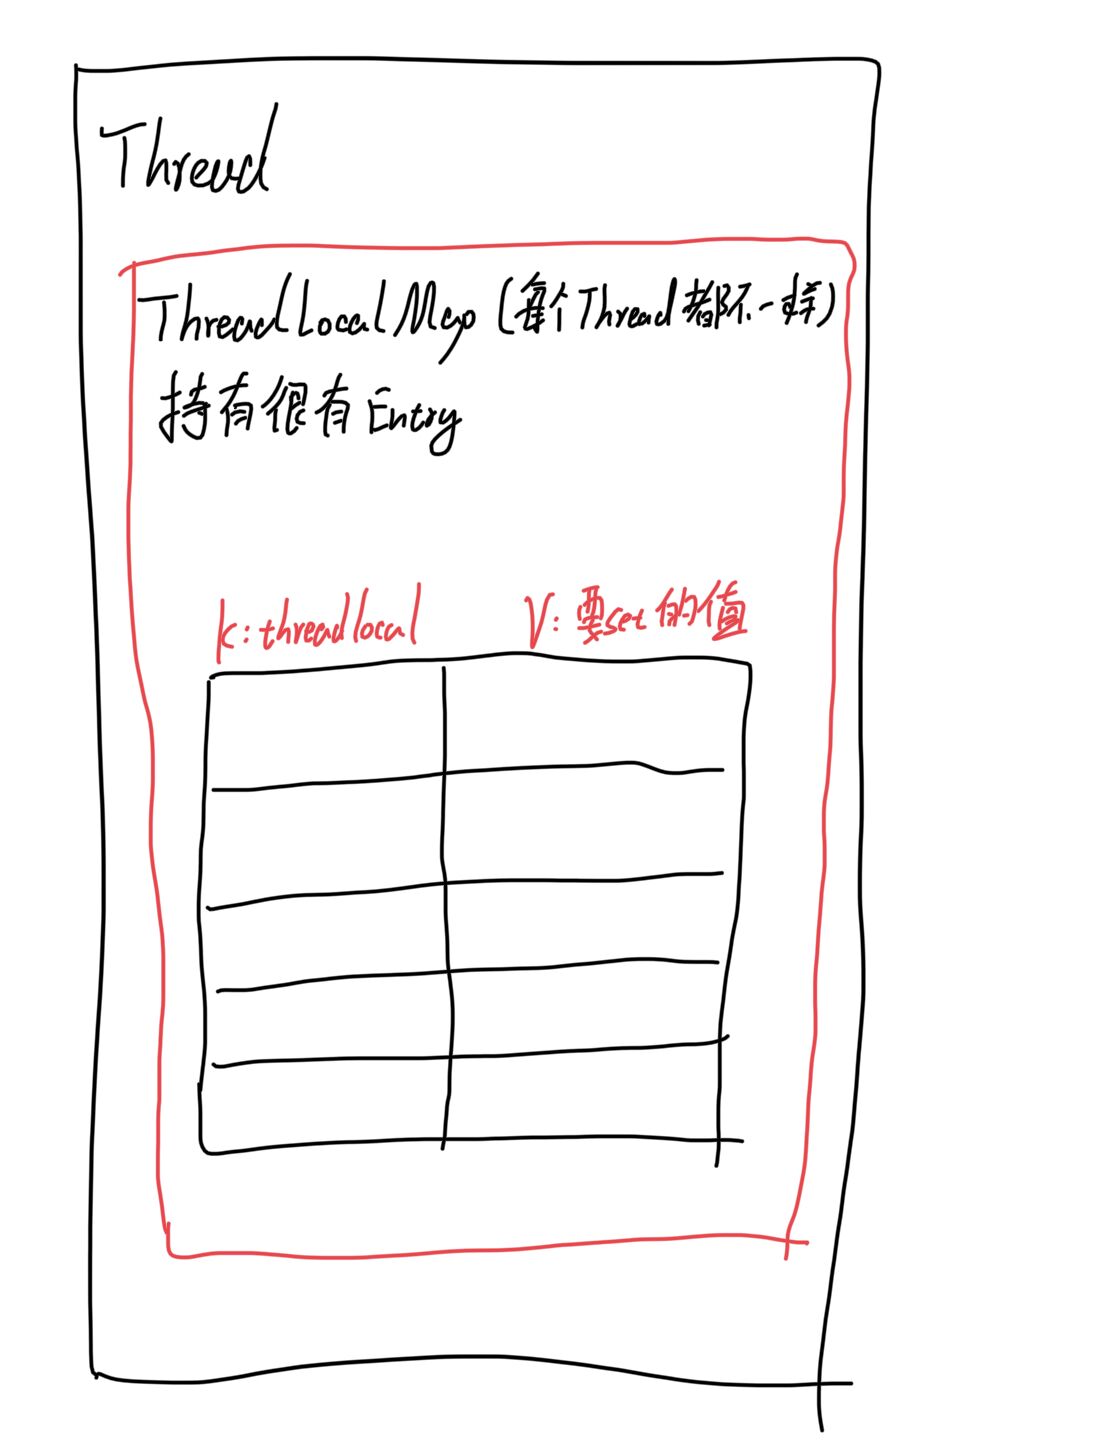 Thread
ThreadLocalMap (每个Thread都不一样)
持有很有Entry
k: threadlocal
V: 要set的值